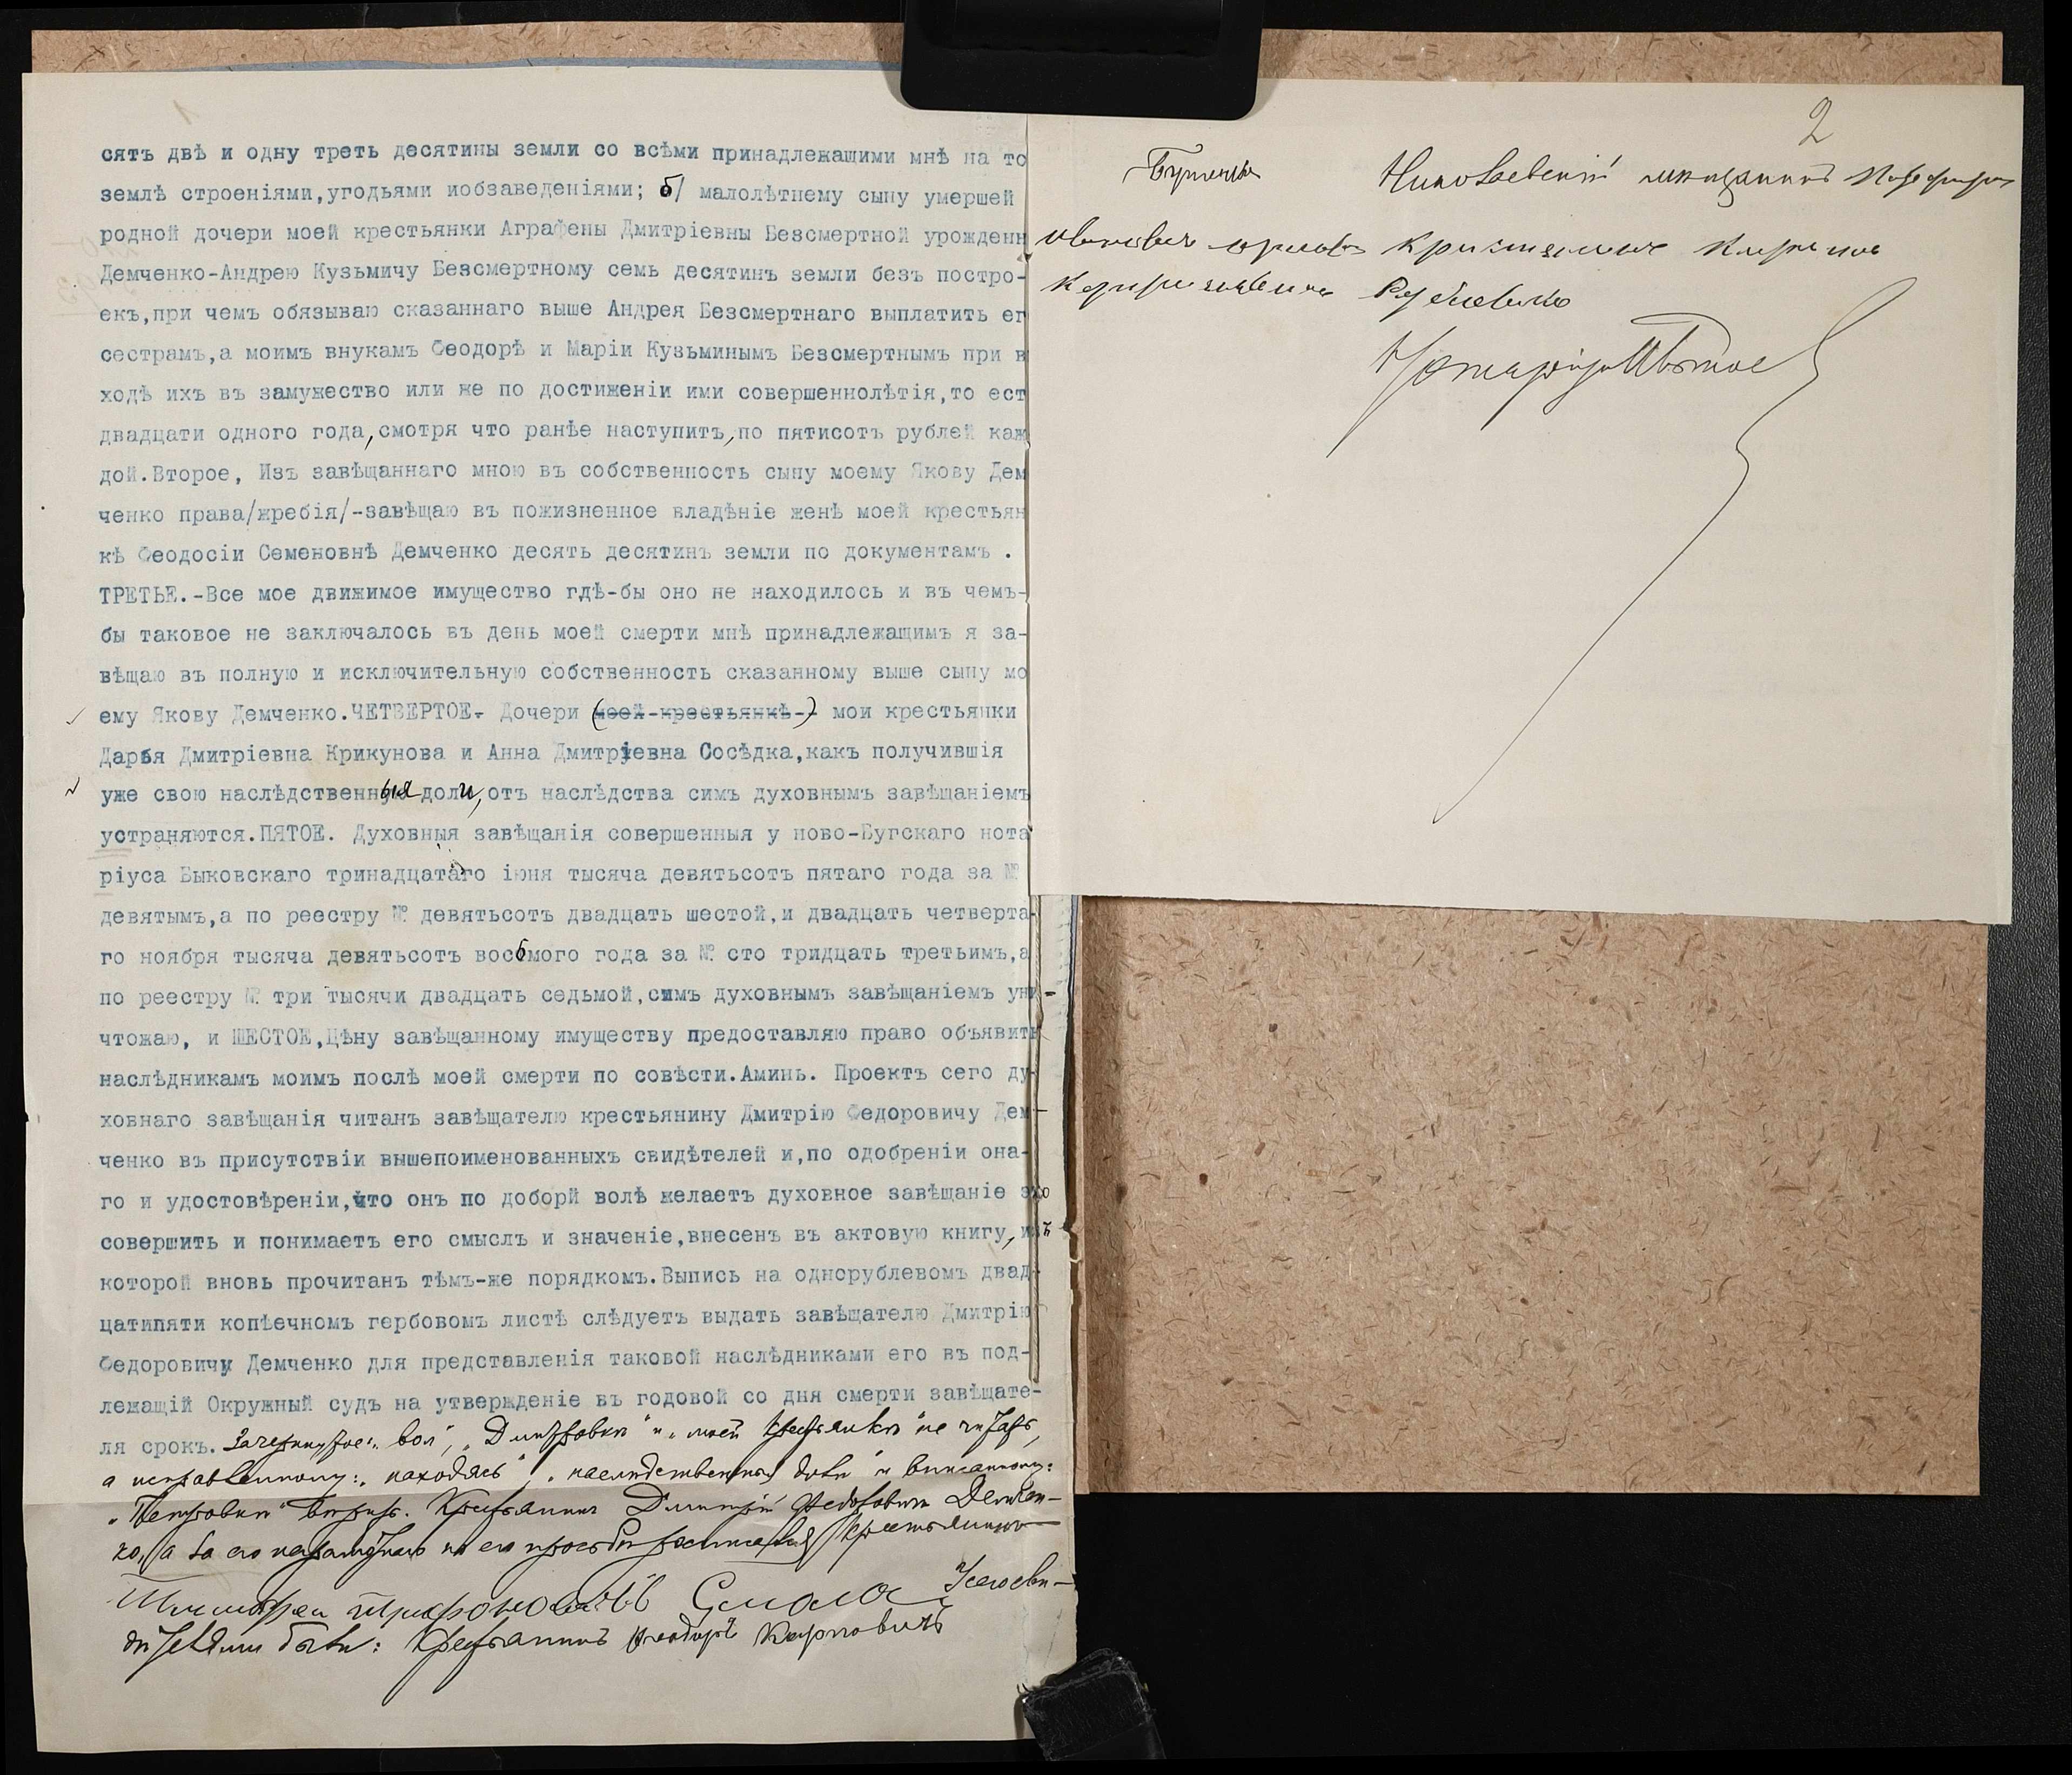 сятъ двѣ и одну треть десятины земли со всѣми принадлежашими мнѣ на то
землѣ строеніями,угодьями иобзаведеніями; б/ малолѣтнему сыну умершей
родной дочери моей крестьянки Аграфены Дмитріевны Безсмертной урожденн
Демченко-Андрею Кузьмичу Безсмертному семь десятинъ земли безъ постро-
екъ,при чемъ обязываю сказаннаго выше Андрея Безсмертнаго выплатить ег
сестрамъ,а моимъ внукамъ Феодорѣ и Маріи Кузьминымъ Безсмертнымъ при в
ходѣ ихъ въ замужество или же по достиженіи ими совершеннолѣтія,то ест
двадцати одного года,смотря что ранѣе наступитъ,по пятисотъ рублей каж
дой.Второе, Изъ завѣщаннаго мною въ собственность сыну моему Якову Дем
ченко права/жребія/-завѣщаю въ пожизненное владѣніе женѣ моей крестьян
кѣ Феодосіи Семеновнѣ Демченко десять десятинъ земли по документамъ .
ТРЕТЬЕ.-Все мое движимое имущество гдѣ-бы оно не находилось и въ чемъ-
бы таковое не заключалось въ день моей смерти мнѣ принадлежащимъ я за-
вѣщаю въ полную и исключительную собственность сказанному выше сыну мо
ему Якову Демченко.ЧЕТВЕРТОЕ- Дочери (моей-крестьянкѣ-) мои крестьянки
Дарья Дмитріевна Крикунова и Анна Дмитріевна Сосѣдка,какъ получившія
уже свою наслѣдственныя доли,отъ наслѣдства симъ духовнымъ завѣщаніемъ
устраняются.ПЯТОЕ. Духовныя завѣщанія совершенныя у ново-Бугскаго нота
ріуса Быковскаго тринадцатаго іюня тысяча девятьсотъ пятаго года за №
девятымъ,а по реестру № девятьсотъ двадцать шестой,и двадцать четверта-
го ноября тысяча девятьсотъ восьмого года за № сто тридцать третьимъ,а
по реестру № три тысячи двадцать седьмой,симъ духовнымъ завѣщаніемъ уни-
чтожаю, и ШЕСТОЕ,Цѣну завѣщанному имуществу предоставляю право объявить
наслѣдникамъ моимъ послѣ моей смерти по совѣсти.Аминь. Проектъ сего ду-
ховнаго завѣщанія читанъ завѣщателю крестьянину Дмитрію Федоровичу Дем-
ченко въ присутствіи вышепоименованныхъ свидѣтелей и,по одобреніи она-
го и удостовѣреніи,что онъ по доборй волѣ желаетъ духовное завѣщаніе это
совершить и понимаетъ его смыслъ и значеніе,внесенъ въ актовую книгу,изъ
которой вновь прочитанъ тѣмъ-же порядкомъ.Выпись на однорублевомъ двад-
цатипяти копѣечномъ гербовомъ листѣ слѣдуетъ выдать завѣщателю Дмитрію
Федоровичу Демченко для представленія таковой наслѣдниками его въ под-
лежащій Окружный судъ на утвержденіе въ годовой со дня смерти завѣщате-
ля срокъ. Зачеркнутое: "вол", "Дмитровки" и "моей крестьянкѣ" не читать,
а исправленному: "находясь", "наслѣдственныя доли" и вписанному:
"Петровки" вѣрить. Крестьянинъ Дмитрій Федоровичъ Демчен-
ко, а за его неграмотнаго по его просьбѣ росписался крестьянинъ
Тимофей Трифоновичъ Смола Свидѣ-
дѣтелями были: Крестьянинъ Федоръ Карповичъ
2
Николаевскій мѣщанинъ
Нотаріусъ